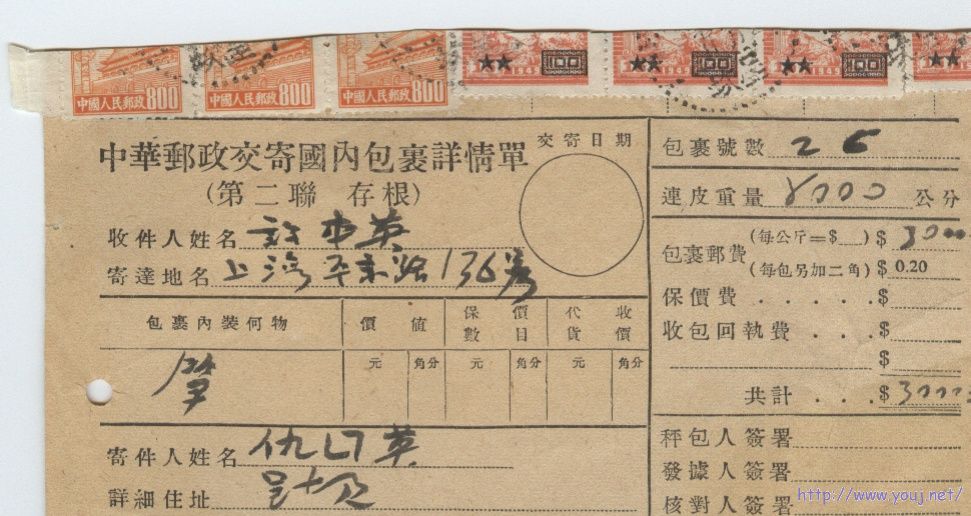 中國人民郵政 800
中國人民郵政 800
中國人民郵政 800
1949 100
1949 100
1949 100
1949
中華郵政交寄國內包裹詳情單
(第二聯 存根)
交寄日期
收件人姓名
寄達地名 上海 136
包裹內裝何物 價值 保價數目 代收貨價
元 角分 元 角分 元 角分
寄件人姓名 仇 英
詳細住址
包裹號數 26
連皮重量 8000 公分
包裹郵費 (每公斤=$ ) $ 3000
(每包另加二角) $ 0.20
保價費 . . . . . $
收包回執費 . . . $
$
共計 . . . $ 3000
秤包人簽署
發據人簽署
核對人簽署
http://www.youj.net/